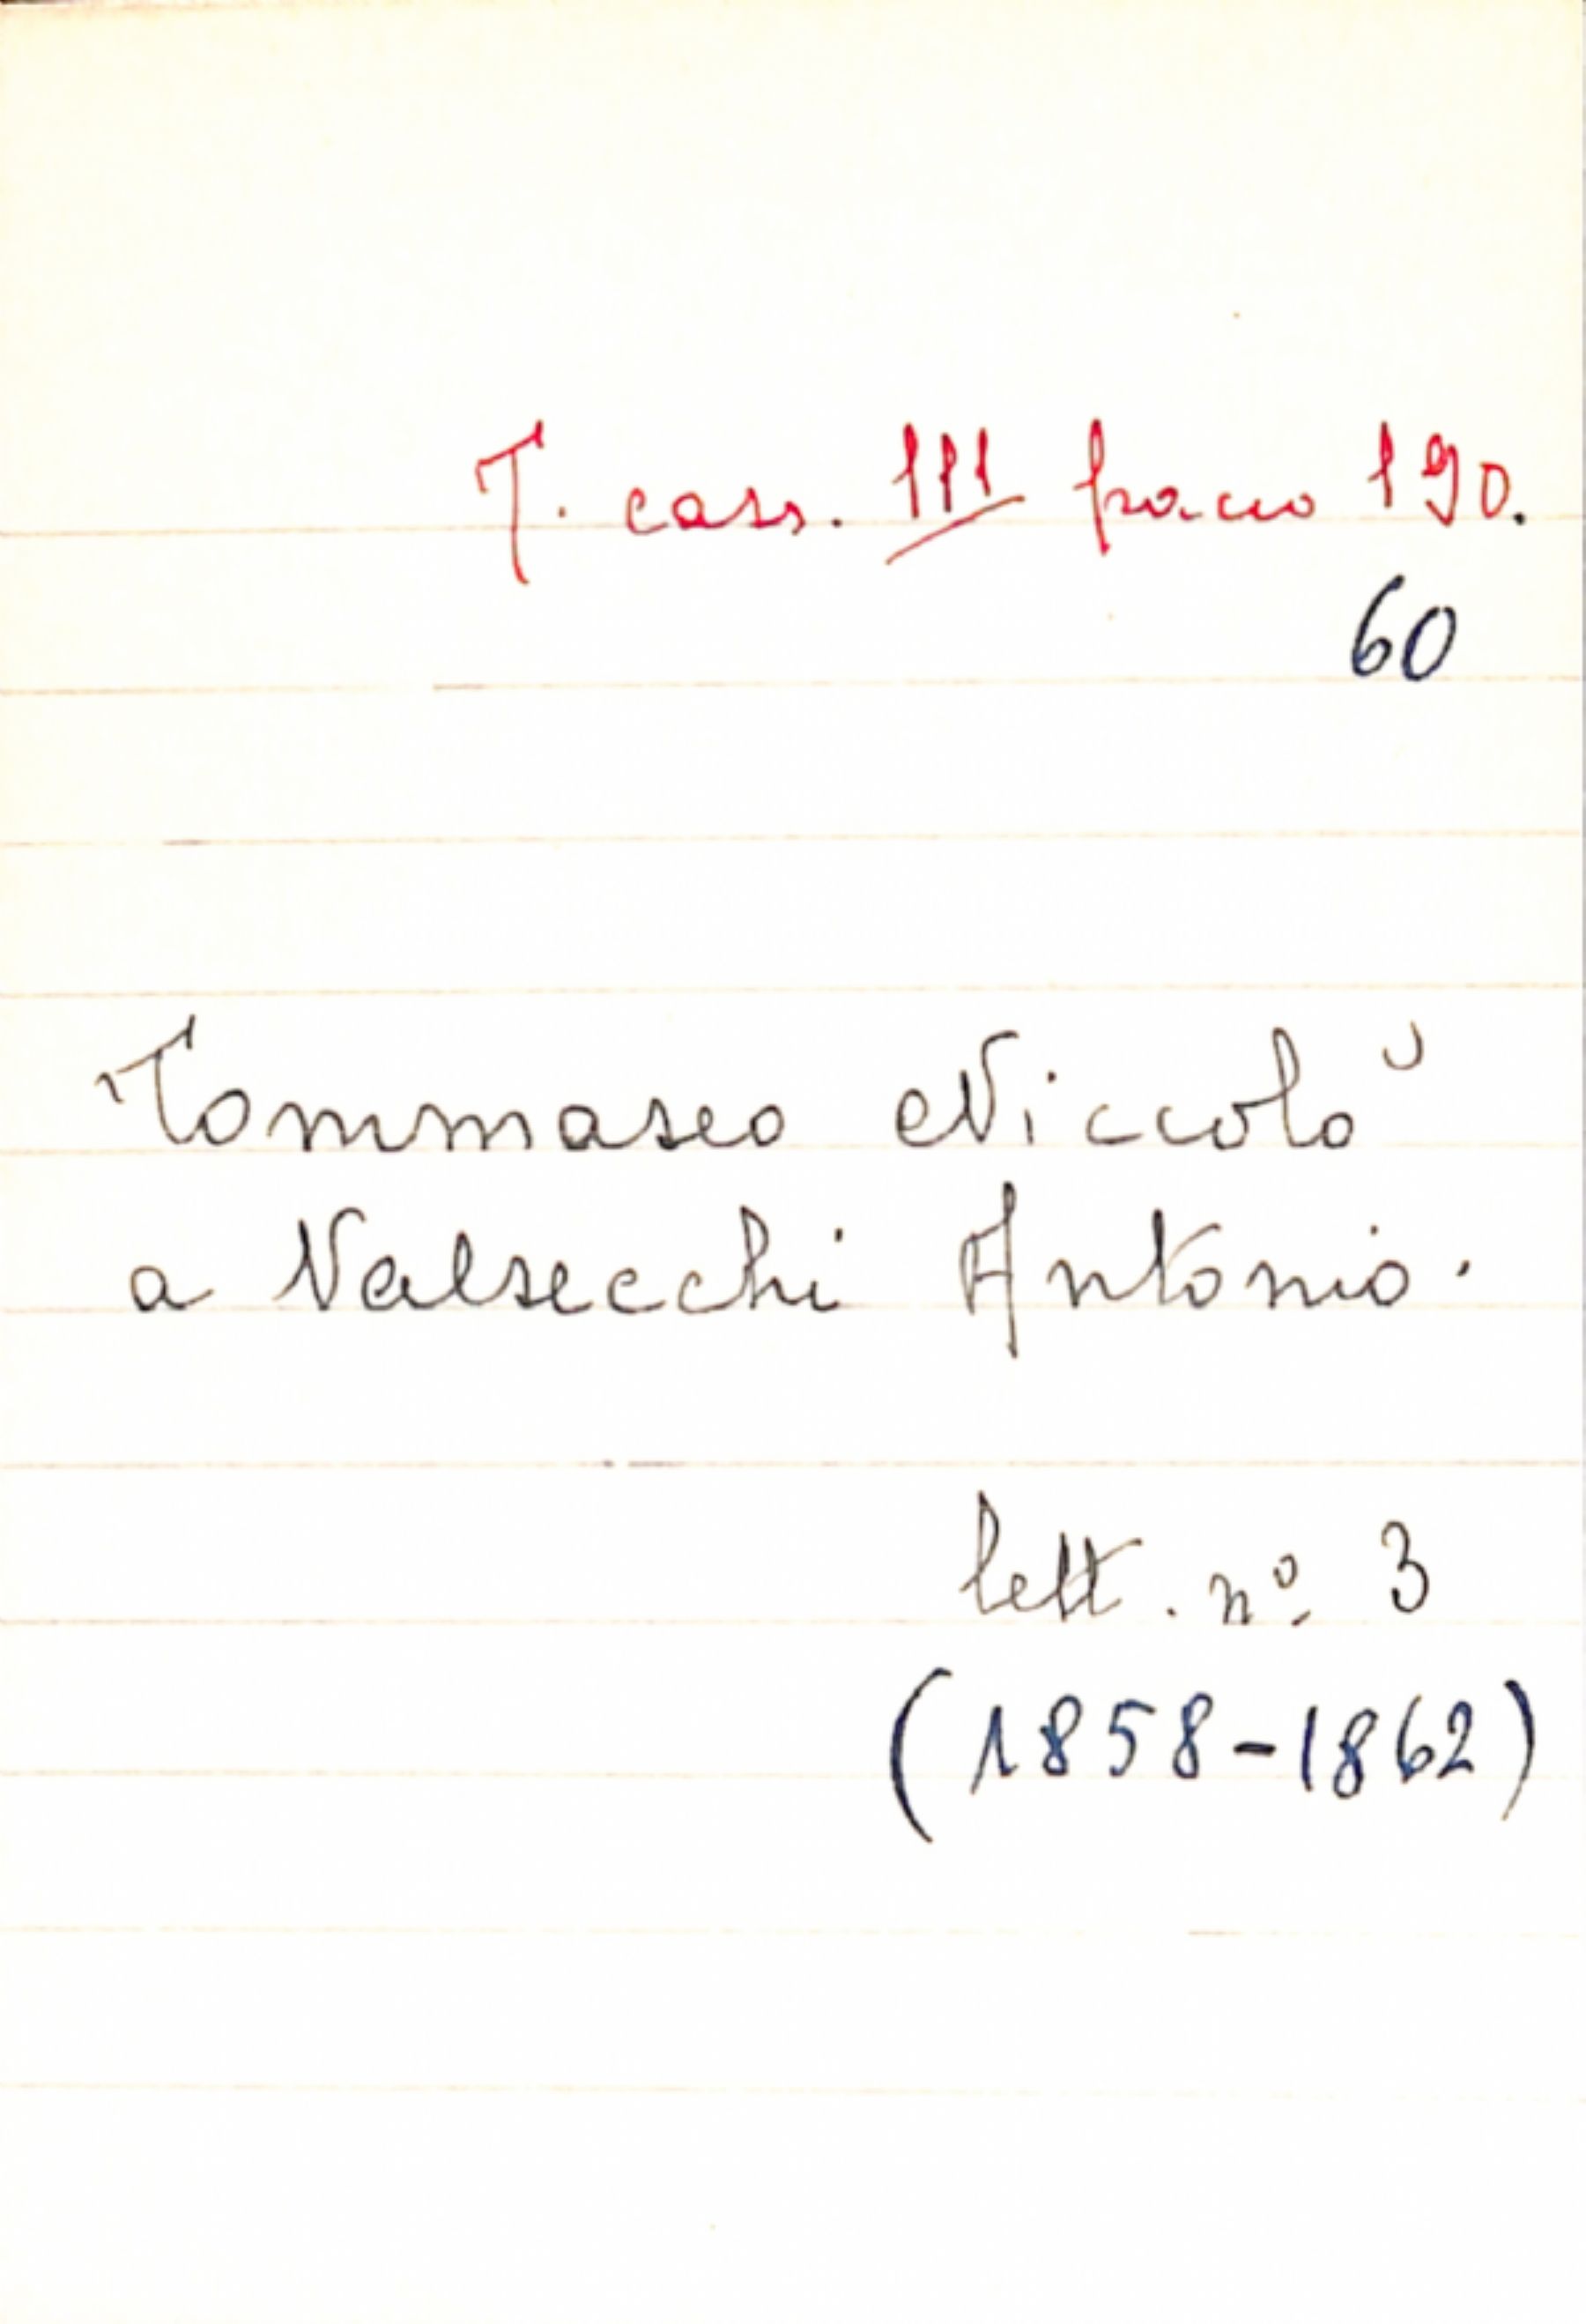 T. cass. III pacco 190.
60
Tommaseo Niccolò
a Valsecchi Antonio.
lett. nº 3
(1858-1862)